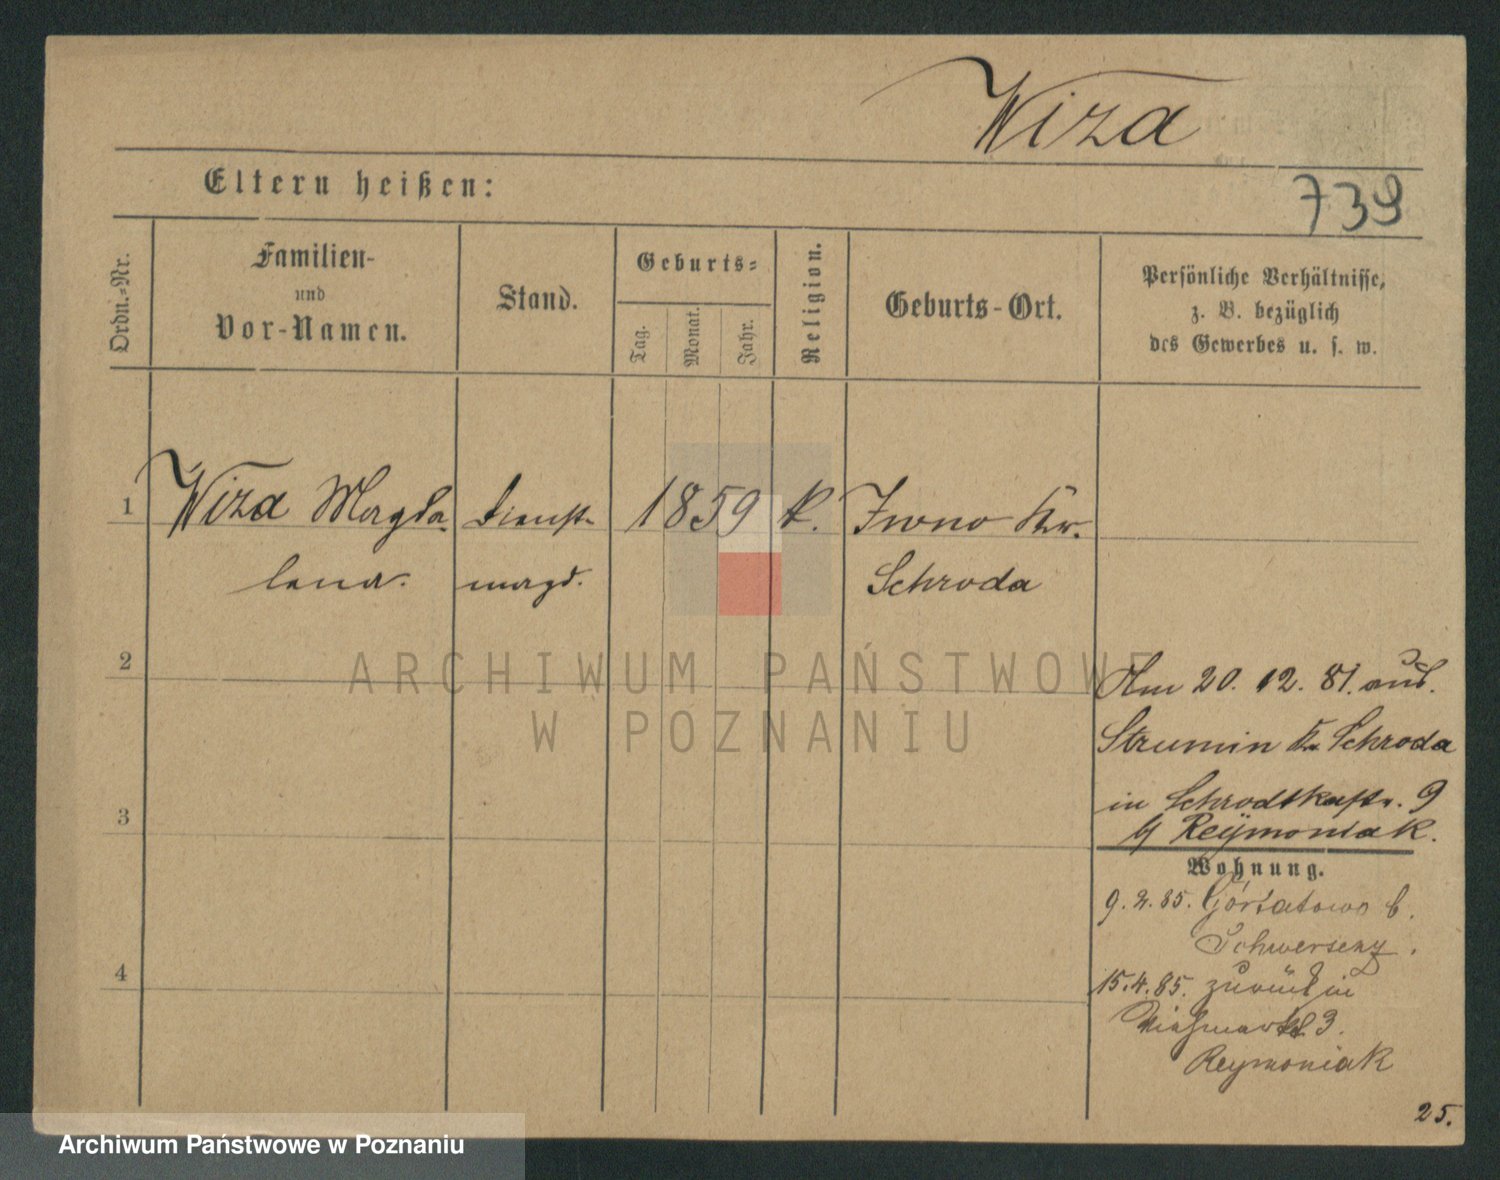 Wiza
Eltern heißen:
739
Ordn.-Nr.
Familien-
und
Vor-Namen.
Stand.
Geburts-
Tag.
Monat.
Jahr.
Religion.
Geburts-Ort.
Persönliche Verhältnisse,
z. B. bezüglich
des Gewerbes u. s. w.
1 Wiza Magda- Dienst- 1859 k. Iwno Kr.
lena. magd. Schroda
2
Am 20. 12. 81. aus
Strumin Kr. Schroda
in Schrodkastr. 9
b/ Reÿmoniak.
3
Wohnung.
9. 2. 85. Gortatowo b.
Schwersenz.
4
15. 4. 85. zurück in
Viehmarkt 3.
Reymoniak
25.
ARCHIWUM PAŃSTWOWE
W POZNANIU
Archiwum Państwowe w Poznaniu